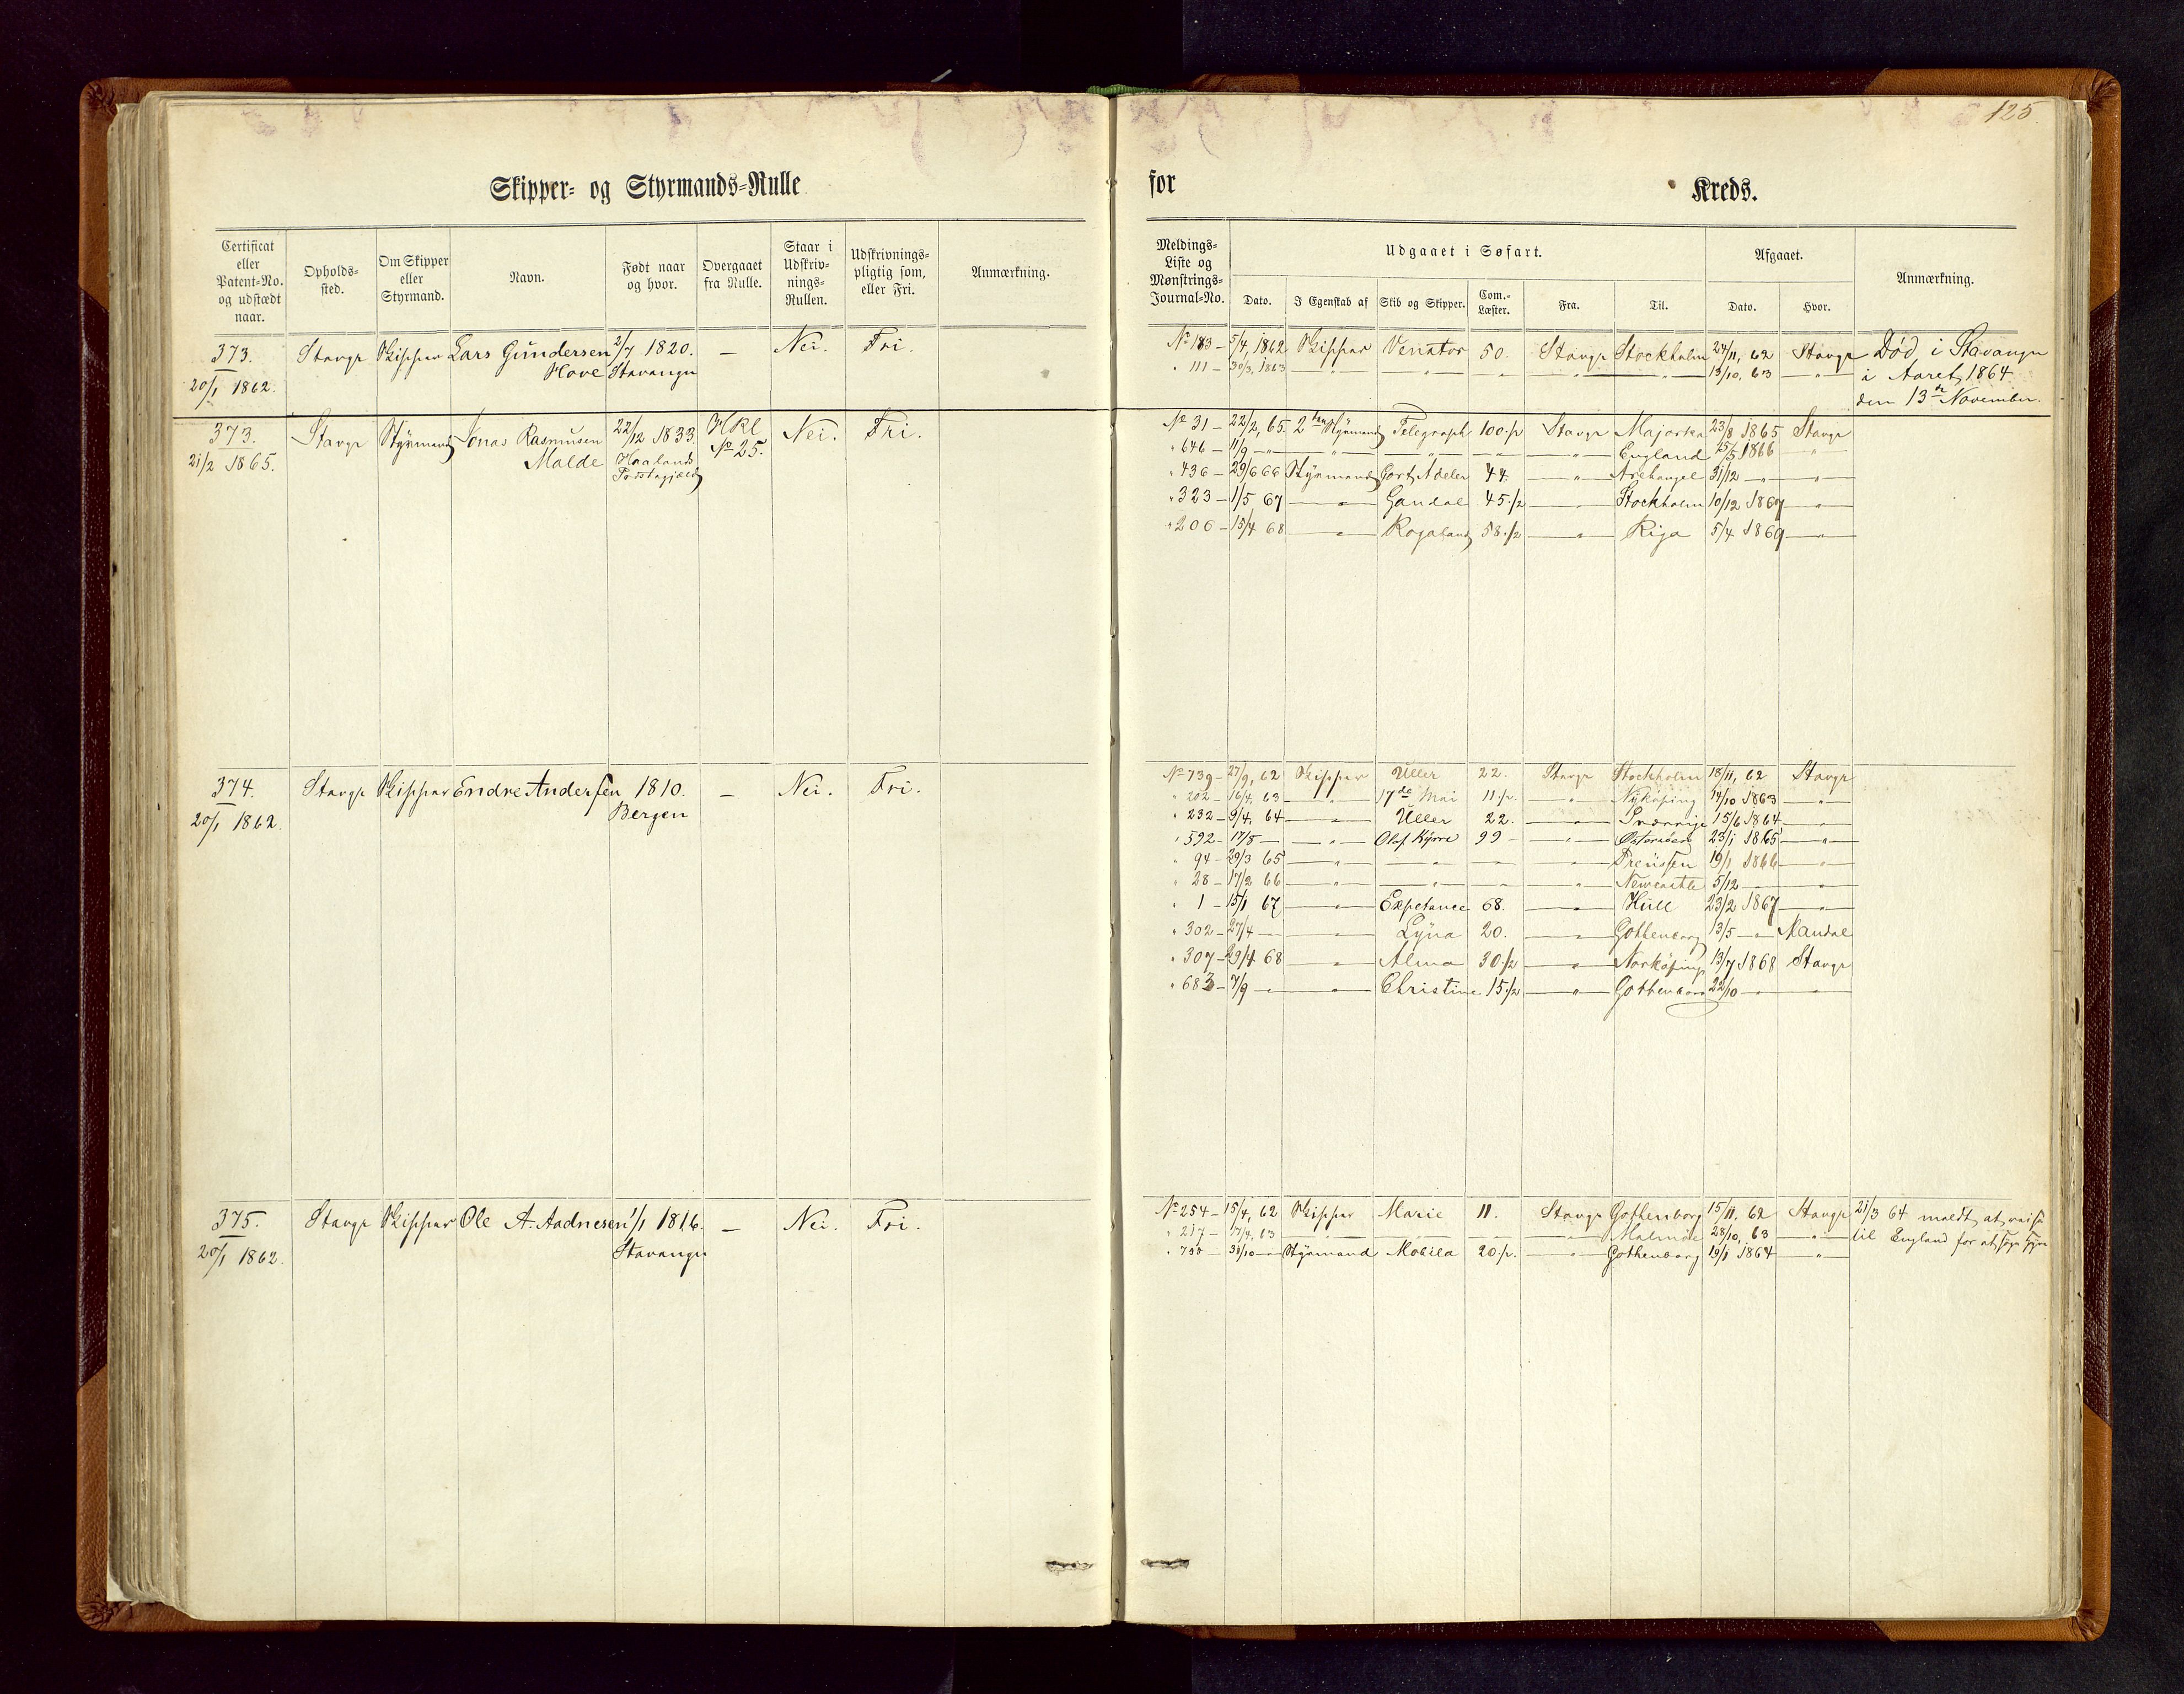 125.
Skipper- og Styrmands-Rulle
for Kreds.
Certificat eller Patent-No. og udstædt naar.
Opholds-sted.
Om Skipper eller Styrmand.
Navn.
Født naar og hvor.
Overgaaet fra Rulle.
Staar i Udskriv-nings-Rullen.
Udskrivnings-pligtig som, eller Fri.
Anmærkning.
Meldings-Liste og Mønstrings-Journal-No.
Udgaaet i Søfart.
Dato.
I Egenskab af
Skib og Skipper.
Com.-Læster.
Fra.
Til.
Afgaaet.
Dato.
Hvor.
Anmærkning.
373. Stavgr Skipper Lars Gundersen 2/7 1820. — Nei. Fri.
20/1 1862. Hove Stavanger
No 183 — 5/4, 1862 Skipper Venator 50. Stavgr Stockholm 24/11, 62 Stavgr Død i Stavanger
" 111 — 30/3, 1863 — " — — " — — " — — " — — " — 13/10, 63 — " — i Aaret 1864
den 13de November.
373. Stavgr Styrmand Jonas Rasmusen 22/12 1833. HRl Nei. Fri.
21/2 1865. Malde Haalands No 25.
Præstegjæld
No 31 — 22/2, 65. 2den Styrmand Telegraph 100 1/2 Stavgr Majorka 23/8 1865 Stavgr
" 646 — 11/9 — " — " — — " — — — " — England 15/5 1866 "
" 436 — 29/6 66 Styrmand Cort Adeler 44. — " — Archangel 31/12 — " — "
" 323 — 1/5 67 — " — Gandal 45 1/2 — " — Stockholm 10/12 1867 — " —
" 206 — 15/4 68 — " — Rogaland 58 1/2 — " — Riga 5/4 1869 — " —
374. Stavgr Skipper Endre Andersen 1810. — Nei. Fri.
20/1 1862. Bergen
No 739 — 27/9, 62 Skipper Uller 22. Stavgr Stockholm 18/11, 62 Stavgr
" 202 — 16/4, 63 — " — 17de Mai 11 1/2. — " — Nykøping 14/10 1863 — " —
" 232 — 9/4, 64 — " — Uller 22. — " — Sverrige 15/6 1864 — " —
" 592 — 17/8 — — " — Olaf Kyrre 99 — — " — Østersøen 23/1 1865 — " —
" 94 — 29/3 65 — " — — " — — — " — Preussen 19/1 1866 — " —
" 28 — 17/2 66 — " — — " — — — " — Newcastle 5/12 — — " —
" 1 — 15/1 67 — " — Expetance 68. — " — Hull 23/2 1867 — " —
" 302 — 27/4 — — " — Lyna 20. — " — Gothenborg 13/5 — " Mandal
" 307 — 29/4 68 — " — Alma 30 1/2 — " — Norköping 13/7 1868 Stavgr
" 683 — 7/9 — " — Christine 15 1/2 — " — Gothenborg 22/10 — " —
375. Stavgr Skipper Ole A. Aadnesen 1/1 1816. — Nei. Fri.
20/1 1862. Stavanger
No 254 — 15/4, 62 Skipper Marie 11. Stavgr Gothenborg 15/11, 62 Stavgr 21/3 64 meldt at reise
" 217 — 17/4, 63 — " — — " — — " — — " — Malmøe 28/10, 63 — " — til England for at søge Hyre
" 755 — 31/10 — Styrmand Mobila 20 1/2. — " — Gothenborg 19/1 1864 — " —